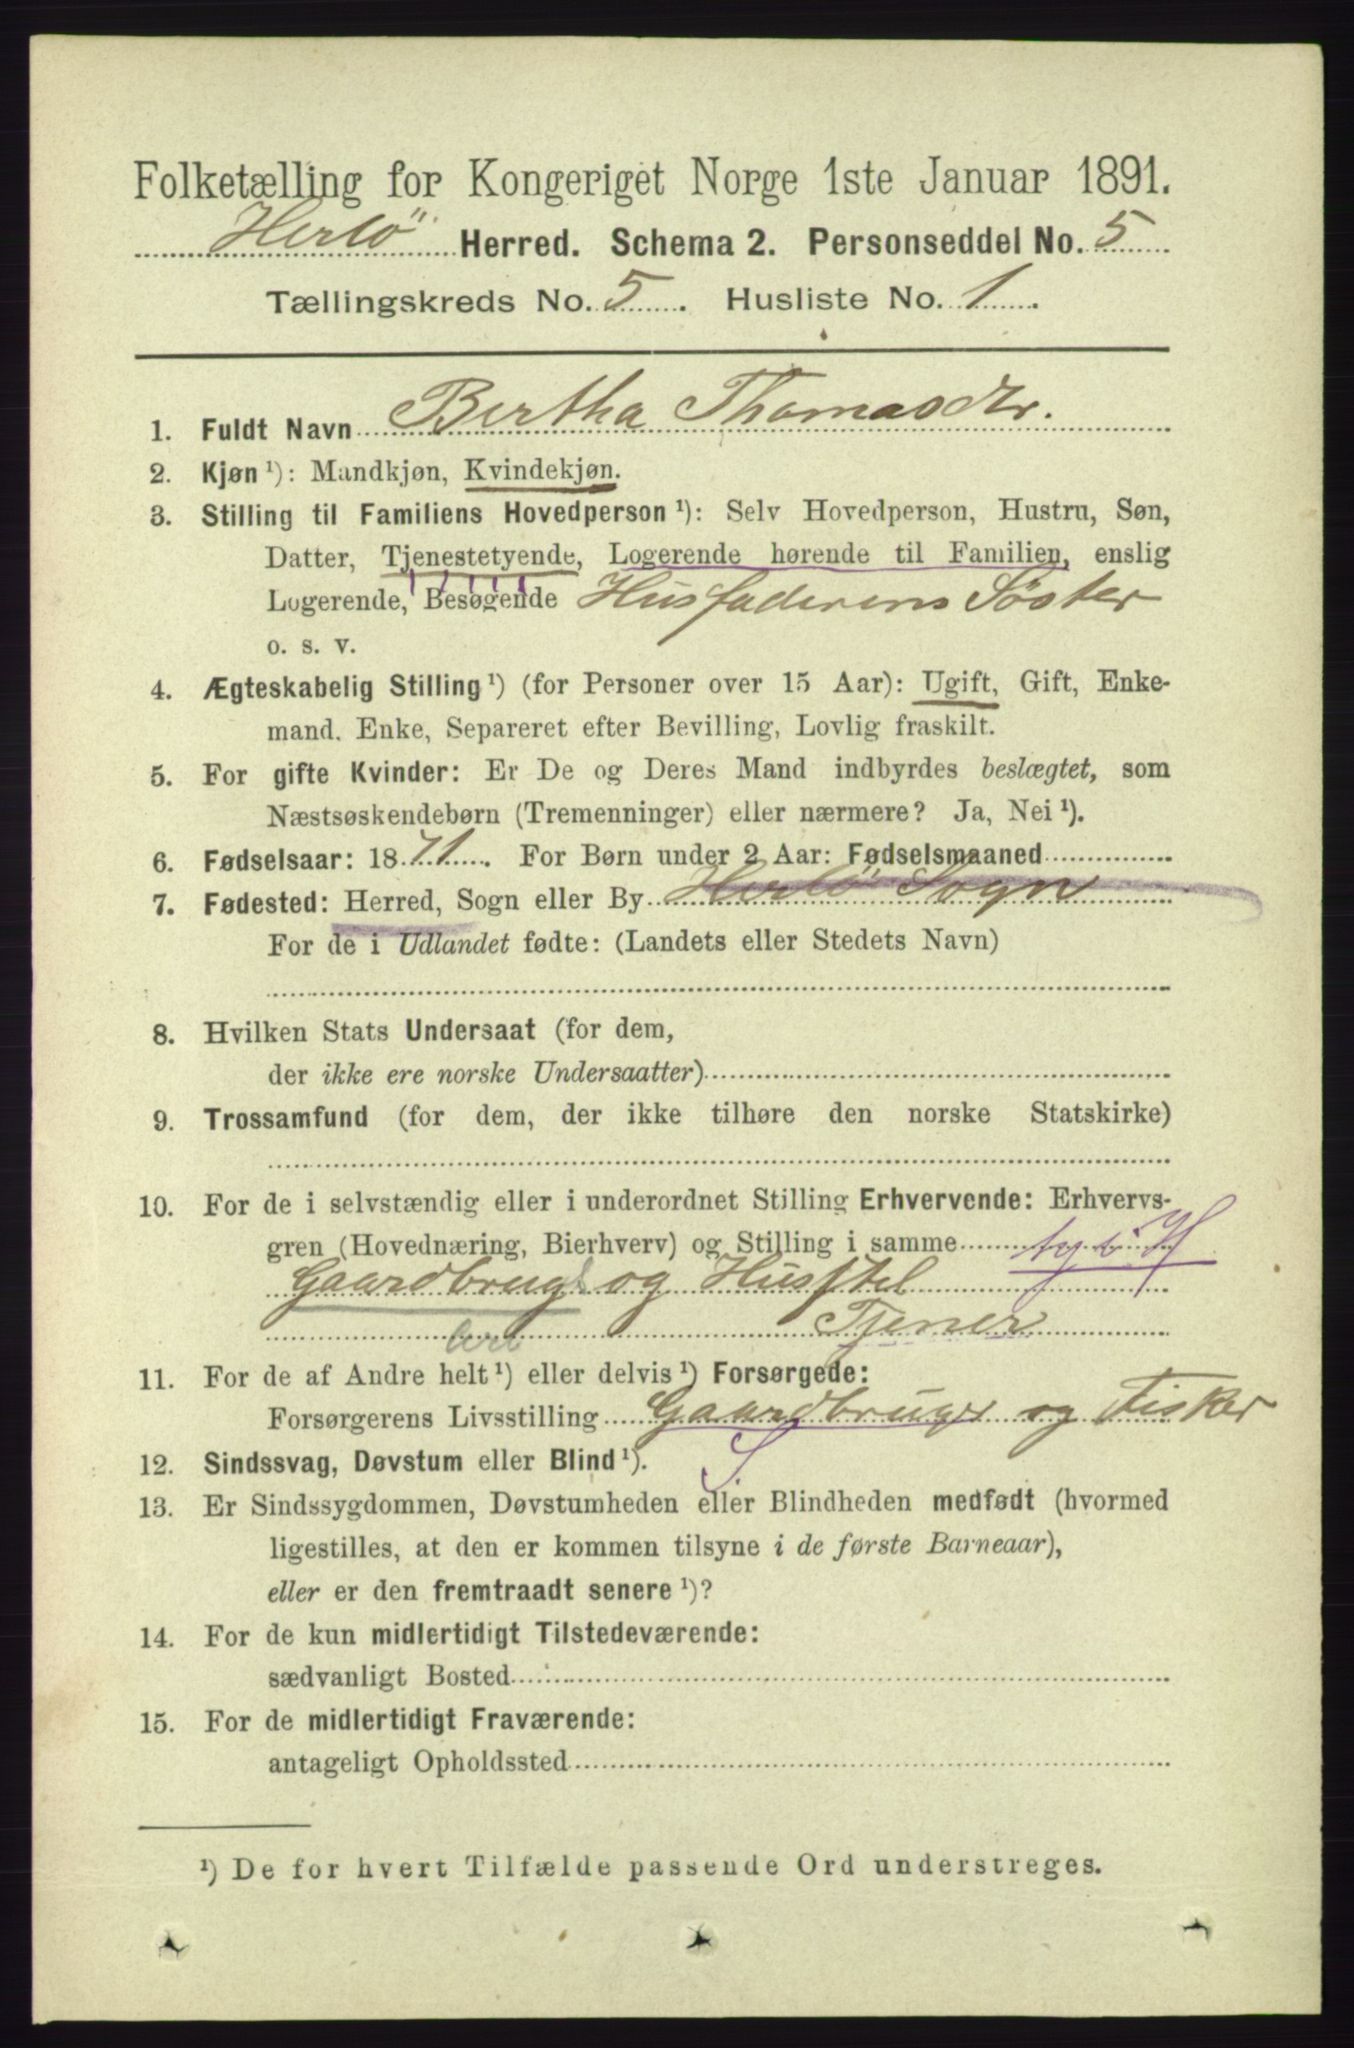 Folketælling for Kongeriget Norge 1ste Januar 1891.
Herlö Herred. Schema 2. Personseddel No. 5
Tællingskreds No. 5. Husliste No. 1.
1. Fuldt Navn Bertha Thomasdtr.
2. Kjøn ¹): Mandkjøn, Kvindekjøn.
3. Stilling til Familiens Hovedperson ¹): Selv Hovedperson, Hustru, Søn,
Datter, Tjenestetyende, Logerende hørende til Familien, enslig
Logerende, Besøgende Husfaderens Söster
o. s. v.
4. Ægteskabelig Stilling ¹) (for Personer over 15 Aar): Ugift, Gift, Enke-
mand. Enke, Separeret efter Bevilling, Lovlig fraskilt.
5. For gifte Kvinder: Er De og Deres Mand indbyrdes beslægtet, som
Næstsøskendebørn (Tremenninger) eller nærmere? Ja, Nei ¹).
6. Fødselsaar: 1871. For Børn under 2 Aar: Fødselsmaaned
7. Fødested: Herred, Sogn eller By Herlö Sogn
For de i Udlandet fødte: (Landets eller Stedets Navn)
8. Hvilken Stats Undersaat (for dem,
der ikke ere norske Undersaatter)
9. Trossamfund (for dem, der ikke tilhøre den norske Statskirke)
10. For de i selvstændig eller i underordnet Stilling Erhvervende: Erhvervs-
gren (Hovednæring, Bierhverv) og Stilling i samme ty i H
Gaardbrug og Husstel
Tjener
11. For de af Andre helt ¹) eller delvis ¹) Forsørgede:
Forsørgerens Livsstilling Gaardbruger og Fisker
12. Sindssvag, Døvstum eller Blind ¹). S
13. Er Sindssygdommen, Døvstumheden eller Blindheden medfødt (hvormed
ligestilles, at den er kommen tilsyne i de første Barneaar),
eller er den fremtraadt senere ¹)?
14. For de kun midlertidigt Tilstedeværende:
sædvanligt Bosted
15. For de midlertidigt Fraværende:
antageligt Opholdssted
¹) De for hvert Tilfælde passende Ord understreges.